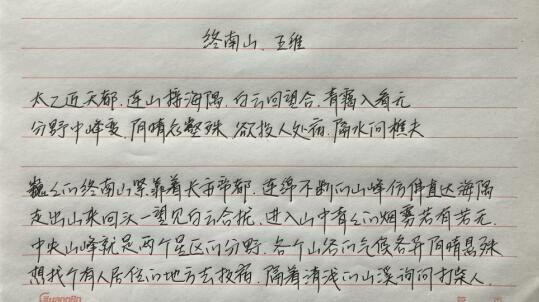 终南山.王维
太乙近天都.连山接海隅.白云回望合.青霭入看无
分野中峰变.阴晴众壑殊.欲投人处宿.隔水问樵夫
巍々的终南山紧靠着长安帝都.连绵不断的山峰仿佛直达海隅
走出山来回头一望见白云合拢.进入山中青々的烟雾若有若无.
中央山峰就是两个星区的分野.各个山谷的气候各异阴晴悬殊
想找个有人居住的地方去投宿.隔着清浅的山溪询问打柴人.
GuangBo